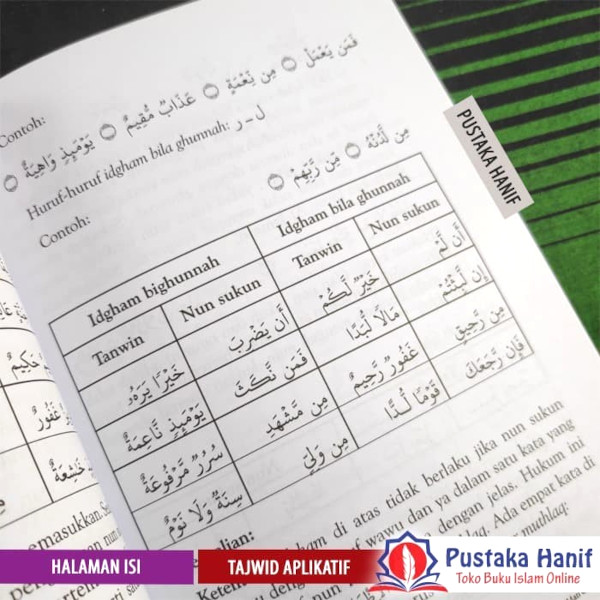 Contoh: فَمَن يَعْمَلْ مِن نِعْمَةٍ عَذَابٌ مُقِيمٌ يَوْمَئِذٍ وَاهِيَةٌ
Huruf-huruf idgham bila ghunnah: ل - ر
Contoh: مِن لَّدُنْهُ مِّن رَّبِّهِمْ
Idgham bighunnah Idgham bila ghunnah
Tanwin Nun sukun Tanwin Nun sukun
خَيْرًا يَرَهُ أَن يَضْرِبَ خَيْرٌ لَّكُمْ أَن لَّمْ
يَوْمَئِذٍ نَّاعِمَةٌ فَمَن نَّكَثَ مَالًا لُّبَدًا إِن لَّبِثْتُمْ
سُرُرٌ مَّرْفُوعَةٌ مِن مَّشْهَدِ غَفُورٌ رَّحِيمٌ مِن رَّحِيقٍ
سِنَةٌ وَلَا نَوْمٌ مِن وَلِيٍّ قَوْمًا لُّدًّا فَإِن رَّجَعَكَ
di atas tidak berlaku jika nun sukun
wawu dan ya dalam satu kata yang
dengan jelas. Hukum ini
Ada empat kata di
muthlaq:
PUSTAKA HANIF
HALAMAN ISI
TAJWID APLIKATIF
Pustaka Hanif
Toko Buku Islam Online